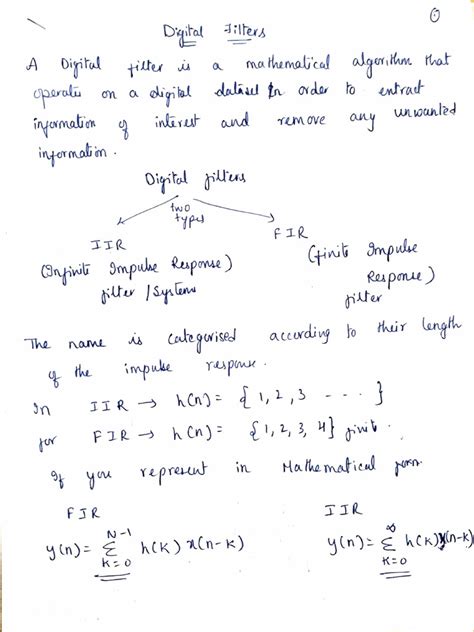 ①
Digital Filters
A Digital filter is a mathematical algorithm that
operates on a digital dataset In order to extract
information of interest and remove any unwanted
information.
Digital filters
two
types
IIR FIR
(Infinite Impulse Response) (finite Impulse
filter / Systems Response)
filter
The name is categorised according to their length
of the impulse response.
In IIR → h(n) = {1, 2, 3 - - - . }
for FIR → h(n) = {1, 2, 3, 4} finite.
If you represent in Mathematical form
FIR IIR
y(n) = N-1 Σ k=0 h(k) x(n-k) y(n) = ∞ Σ k=0 h(k) x(n-k)